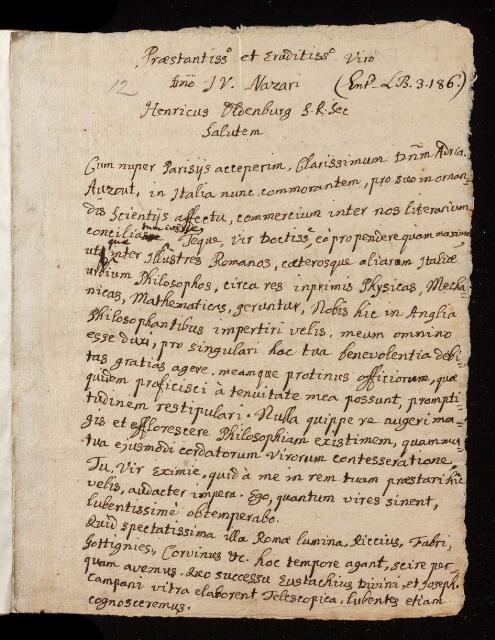 Præstantissᵒ et Eruditissᵒ Viro
12 Dño J V. Nazari (Entᵈ LB. 3. 186.)
Henricus Oldenburg S. R. Sec
Salutem
Cum nuper Parisijs acceperim, Clarissimum Dñm Adria.
Auzout, in Italia nunc commorantem, pro suo in ornan=
dis Scientijs affectu, commercium inter nos literarium
concilia tum, Teque, Vir Doctissᵉ, eò propendere quam maximè
ut quæ inter Illustres Romanos, cæterosque aliarum Italiæ
urbium Philosophos, circa res inprimis Physicas, Mecha=
nicas, Mathematicas, geruntur, Nobis hic in Anglia
Philosophantibus impertiri velis. meum omnino
esse duxi, pro singulari hac tua benevolentia debi=
tas gratias agere, meamque protinus officiorum, quæ
quidem proficisci à tenuitate mea possunt, prompti=
tudinem restipulari. Nulla quippe re augeri ma=
gis et efflorescere Philosophiam existimem, quam mu=
tua ejusmodi cordatorum virorum contesseratione.
Tu, Vir Eximie, quid à me in rem tuam præstari hic
velis, audacter impera. Ego, quantum vires sinent,
lubentissimè obtemperabo.
Quid spectatissima illa Romæ lumina, Riccius, Fabri,
Gottignies, Corvinus &c. hoc tempore agant, scire per=
quam avemus. Quo successu Eustachius Divini, et Joseph.
Campani vitra elaborent Telescopica, lubentes etiam
cognosceremus.